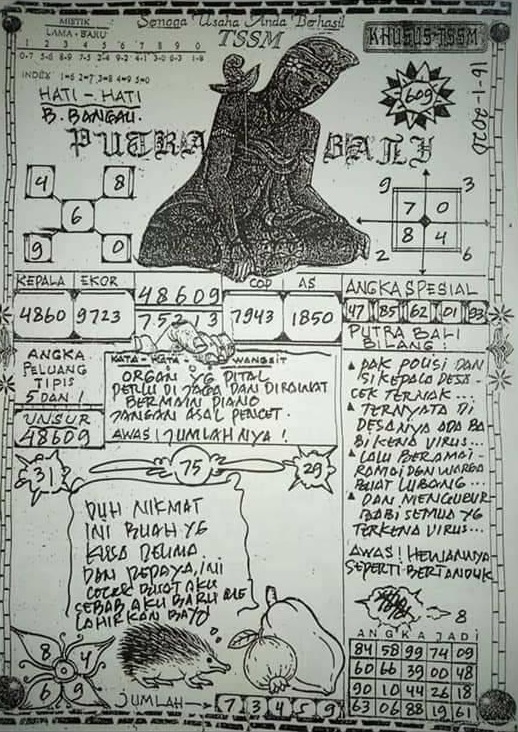 MISTIK
LAMA - BARU
Semoga Usaha Anda Berhasil
TSSM
KHUSUS TSSM
1 2 3 4 5 6 7 8 9 0
INDEX 1=6 2=7 3=8 4=9 5=0
HATI - HATI
B. BANGALI.
609
16-1-2020
PUTRA BALI
4 8
6
9 0
9 3
7 0
8 4
2 6
KEPALA EKOR
4860 9723
48609
75213
COP AS
7943 1850
ANGKA SPESIAL
47 85 62 01 93
PUTRA BALI
BILANG!
PAK POLISI DAN
SI KEPALA DESA -
CEK TERNAK ...
TERNYATA DI
DESANYA ADA BA
BI KENA VIRUS ...
LALU BERAMAI -
RAMAI DGN WARGA
BUAT LUBANG ...
DAN MENGUBUR
BABI SEMUA YG
TERKENA VIRUS ...
AWAS! HEWANNYA
SEPERTI BERTANDUK
ANGKA
PELUANG
TIPIS
5 DAN 1
UNSUR
48609
KATA - KATA WANGSIT
ORGAN YG VITAL
PERLU DI JAGA DAN DIRAWAT
BERMAIN PIANO
JANGAN ASAL PENCET.
AWAS! JUMLAHNYA!
31
75
29
DUH NIKMAT
INI BUAH YG
KUSA DELIMA
DAN PEPAYA, INI
COCOK BUAT AKU
SEBAB AKU BARU
LAHIRKAN BAYI
8 4
6 9
JUMLAH
7 3 4 5 9
8
ANGKA JADI
84 58 99 74 09
60 66 39 00 48
90 10 44 26 18
63 06 88 19 61